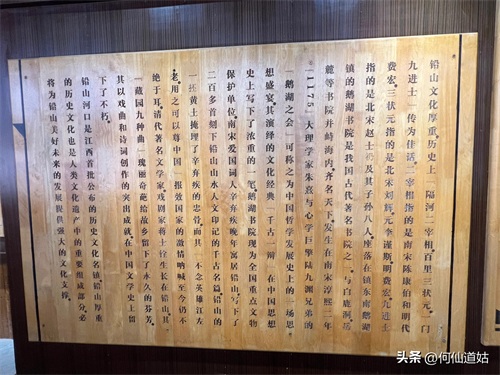 铅山文化厚重。历史上“隔河二宰相,百里三状元,一门
九进士”传为佳话。二宰相指的是南宋陈康伯和明代
费宏。三状元指的是北宋刘辉、元李谨斯、明费宏。九进士
指的是北宋赵士及其子孙八人。座落在镇东南鹅湖
镇的鹅湖书院是我国古代著名书院之一。与白鹿洞、
麓等书院并峙海内,齐名天下。发生在南宋淳熙二年
(1175)大理学家朱熹与心学巨擘陆九渊兄弟的
鹅湖之会,可称之为中国哲学发展史上的一场思
想盛宴。其演绎的文化经典“千古一辩”在中国思想
史上写下了浓重的一笔。鹅湖书院现为全国重点文物
保护单位。南宋爱国词人辛弃疾晚年寓居铅山,写下了
二百多首刻下铅山山水人文印记的千古名篇,铅山的
一抔黄土掩埋了辛弃疾的忠骨。而其“不念英雄江左
老,用之可以尊中国”报效国家的激情呐喊至今仍不
绝于耳。清代著名文学家、戏剧家蒋士铨生长在铅山,其
“藏园九种曲”瑰丽奇葩给故乡留下了永久的芬芳,
其以戏曲和诗词创作的突出成就,在中国文学史上留
下了不朽。
铅山河口是江西首批公布的历史文化名镇。铅山厚重
的历史文化也是人类文化遗产中的重要组成部分,必
将为铅山美好未来的发展提供强大的文化支撑。
头条 @何仙道姑